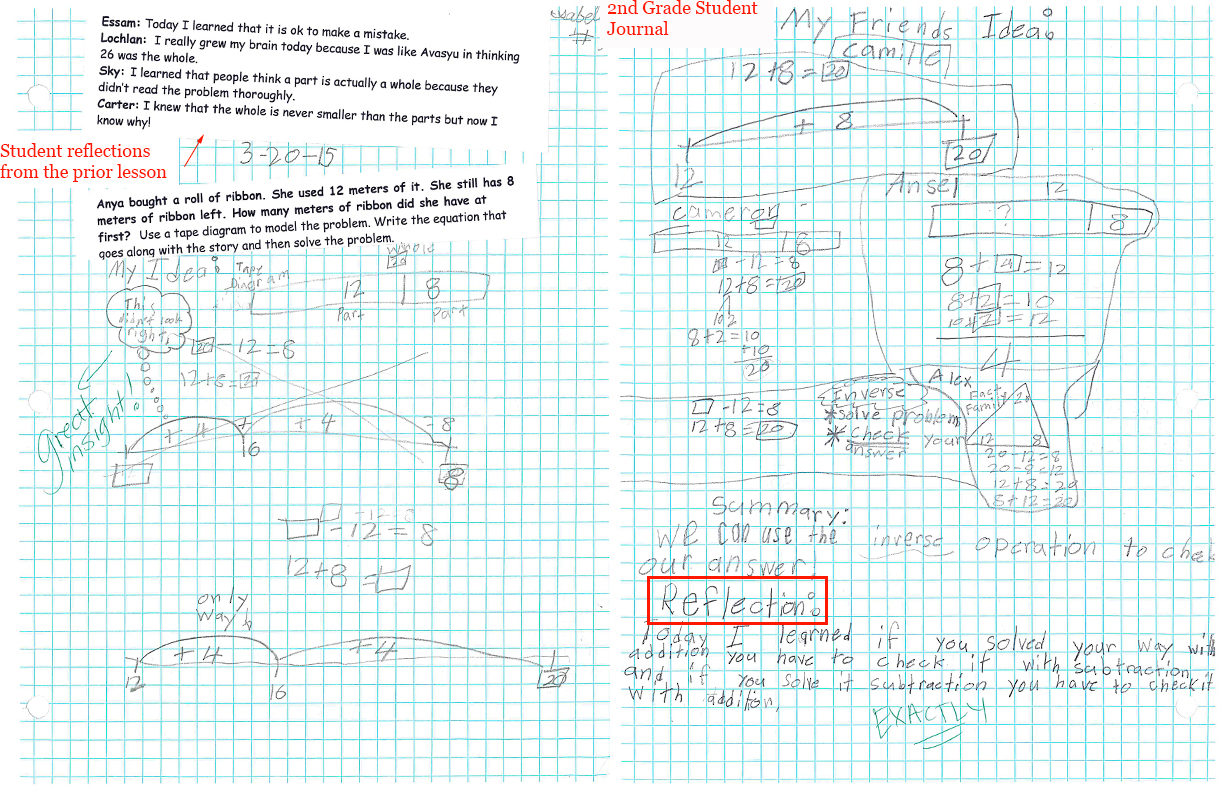 Essam: Today I learned that it is ok to make a mistake.
Lochlan: I really grew my brain today because I was like Avasyu in thinking
26 was the whole.
Sky: I learned that people think a part is actually a whole because they
didn't read the problem thoroughly.
Carter: I knew that the whole is never smaller than the parts but now I
know why!
Student reflections
from the prior lesson
3-20-15
Anya bought a roll of ribbon. She used 12 meters of it. She still has 8
meters of ribbon left. How many meters of ribbon did she have at
first? Use a tape diagram to model the problem. Write the equation that
goes along with the story and then solve the problem.
My Idea:
Tape
Diagram
Whole
20
12 8
Part Part
This
didn't look
right.
20 - 12 = 8
12+8=20
Great
insight!
+ 4 + 4 = 8
16
8
- 12 = 8
12+8=
only
way
+4 +4
12 16 20
Isabel
#
2nd Grade Student
Journal
My Friends Idea:
Camilla
12+8=20
+ 8
12 20
Cameron
12 8
- 12 = 8
12+8=20
10 2
8+2=10
+10
20
Ansel 12
? 8
8+4=12
8+2=10
10+2=12
4
-12=8
12+8=20
Inverse
*solve problem
*check your
answer
Alex
Fact
Family
20
12 8
20-12=8
20-8=12
12+8=20
8+12=20
Summary:
We can use the inverse operation to check
our answer.
Reflection:
Today I learned if you solved your way with
addition you have to check it with subtraction
and if you solve it subtraction you have to check it
with addition.
EXACTLY